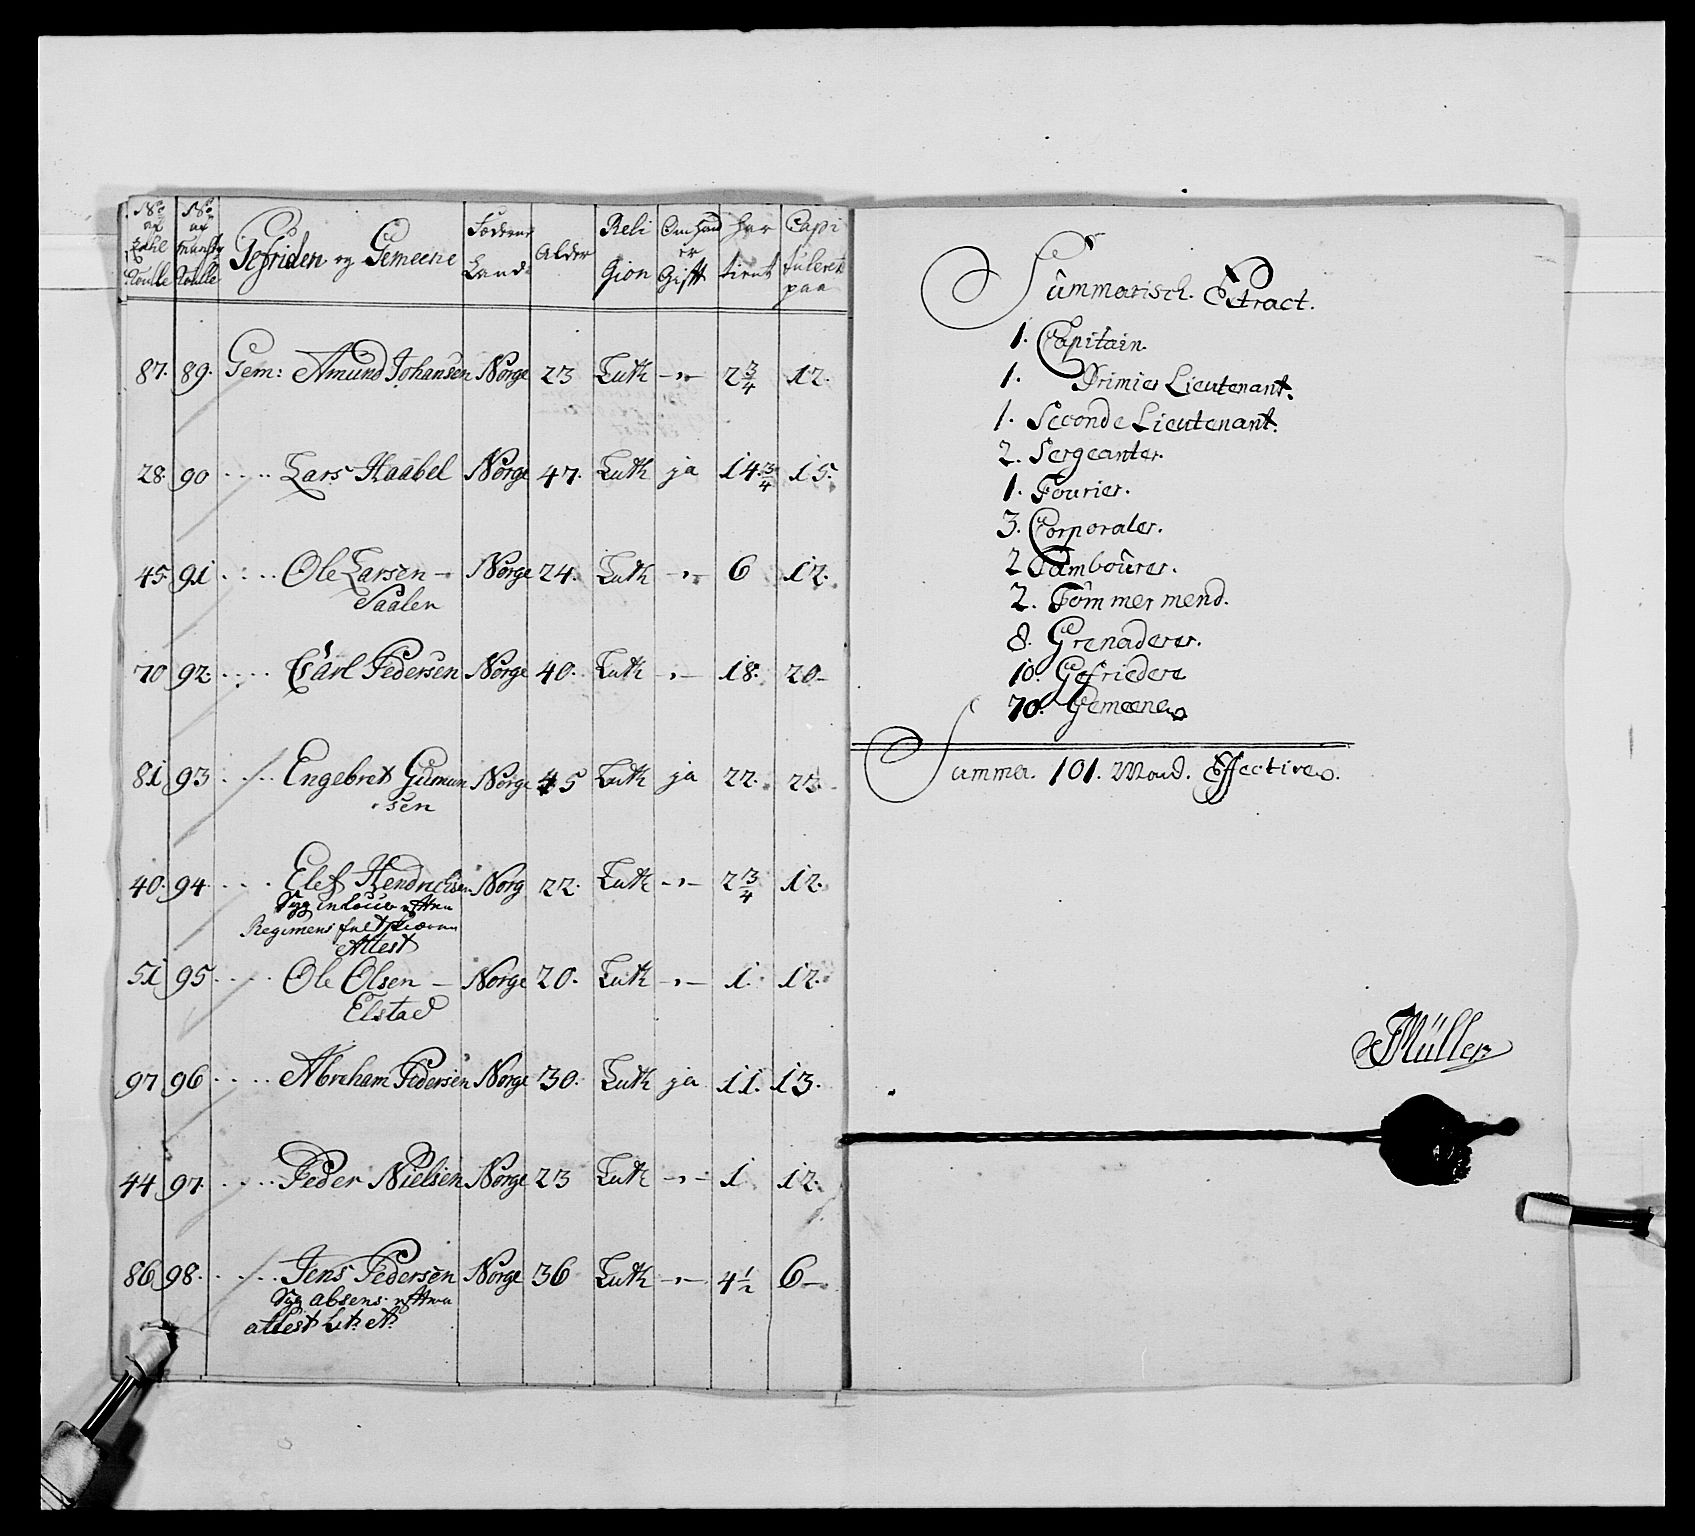 No af Zahl Roulle | No af Munster Roulle | Gefriden og Gemeene | Föderne Land | Alder | Religion | Om hand er Gifft | har tient | Capituleret paa
87. 89. Gem: Amund Johansen Norge 23 Luth -,- 2 3/4 12.
28. 90 .... Lars Haabel Norge 47. Luth ja 14 3/4 15.
45 91 .... Ole Larsen - Norge 24. Luth -,- 6 12.
Saalen
70 92 .... Carl Pedersen Norge 40. Luth -,- 18. 20-
81 93 .... Engebret Gumun Norge 45 Luth ja 22. 23.
sen
40. 94 .... Elef Hendrichsen Norg 22. Luth -,- 2 3/4 12.
Syg
Regimens
Attest
51 95 .... Ole Olsen - Norge 20. Luth -,- 1. 12.
Elstad
97 96 .... Abreham Pedersen Norge 30. Luth ja 11. 13.
44 97. .... Peder Nielsen Norge 23 Luth -,- 1 12.
86 98. .... Jens Pedersen Norge 36 Luth -,- 4 1/2 6-
Syg absens
attest Lit. A.
Summarisch. Extract.
1. Capitain.
1. Primier Lieutenant.
1. Seconde Lieutenant.
2. Sergeanter.
1. Fourier.
3. Corporaler.
2 Tambourer.
2. Tömmermend.
8. Grenaderer.
10. Gefriedere
70. Gemeene
Summa. 101. Mand. Effective.
Müller